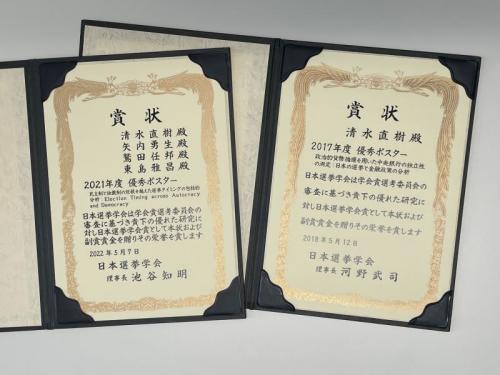 賞状
清水直樹殿
矢内勇生殿
鷲田任邦殿
東島雅昌殿
2021年度 優秀ポスター
民主制と独裁制の垣根を越えた選挙タイミングの包括的
分析:Election Timing across Autocracy
and Democracy
日本選挙学会は学会賞選考委員会の
審査に基づき貴下の優れた研究に
対し日本選挙学会賞として本状および
副賞賞金を贈りその栄誉を賞します
2022年5月7日
日本選挙学会
理事長 池谷知明
賞状
清水直樹殿
2017年度 優秀ポスター
政治的貨幣循環を用いた中央銀行の独立性
の測定:日本の選挙と金融政策の分析
日本選挙学会は学会賞選考委員会の
審査に基づき貴下の優れた研究に
対し日本選挙学会賞として本状および
副賞賞金を贈りその栄誉を賞します
2018年5月12日
日本選挙学会
理事長 河野武司